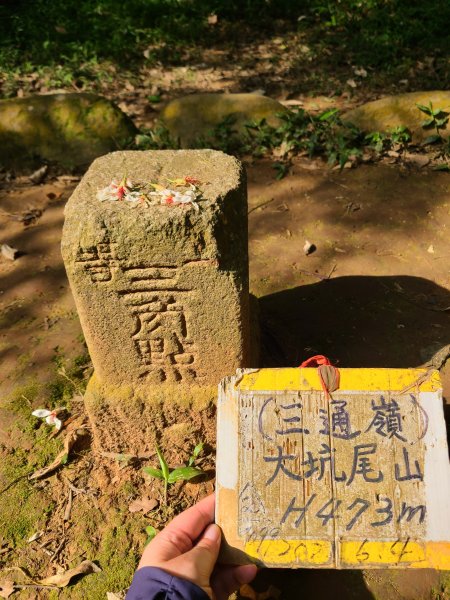 等三
角
點
(三通嶺)
大坑尾山
H473m
6.4